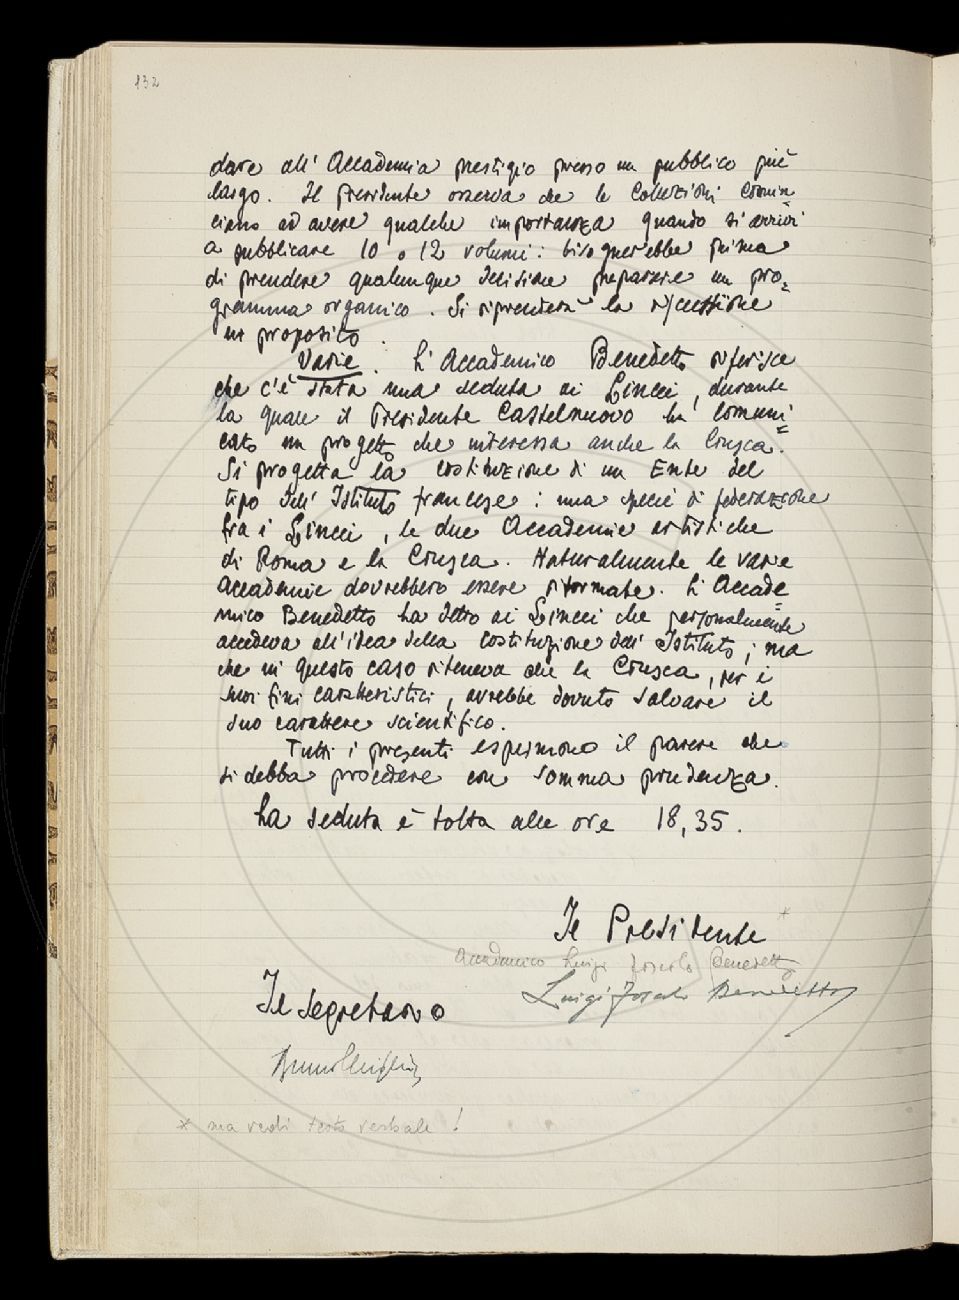 132
dare all' Accademia prestigio presso un pubblico più
largo. Il Presidente osserva che le Collezioni comin=
ciano ad avere qualche importanza quando si arrivi
a pubblicare 10 o 12 volumi: bisognerebbe prima
di prendere qualunque decisione preparare un pro=
gramma organico. Si riprenderà la discussione
in proposito.
Varie. L'Accademico Benedetto riferisce
che c'è stata una seduta ai Lincei, durante
la quale il Presidente Castelnuovo ha comuni=
cato un progetto che interessa anche la Crusca.
Si progetta la costituzione di un Ente del
tipo dell' Istituto francese: una specie di federazione
fra i Lincei, le due Accademie artistiche
di Roma e la Crusca. Naturalmente le varie
Accademie dovrebbero essere riformate. L'Accade=
mico Benedetto ha detto ai Lincei che personalmente
accedeva all'idea della costituzione dell' Istituto; ma
che in questo caso riteneva che la Crusca, per i
suoi fini caratteristici, avrebbe dovuto salvare il
suo carattere scientifico.
Tutti i presenti esprimono il parere che
si debba procedere con somma prudenza.
La seduta è tolta alle ore 18,35.
Il Presidente *
Accademico Luigi Foscolo Benedetto
Luigi Foscolo Benedetto
Il Segretario
Bruno Migliorini
* ma vedi testo verbale!